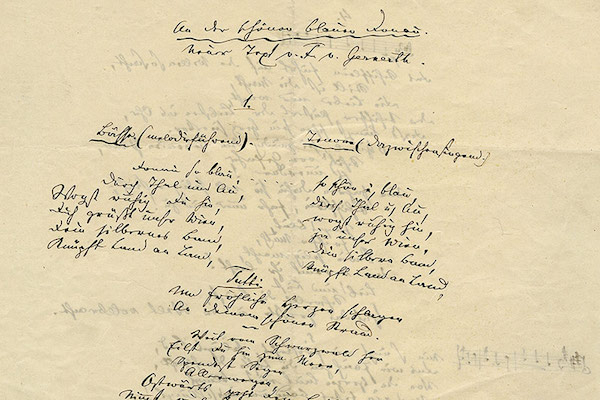 An der schönen blauen Donau.
Neuer Text v. F. v. Gernerth.
1.
Bässe (melodieführend).
Donau so blau,
durch Thal und Au,
Wogst ruhig du hin,
Dich grüßt unser Wien,
Dein silbernes Band,
Knüpft Land an Land,
Tenore (dazwischensingend:)
so schön u. blau,
durch Thal u. Au,
wogst ruhig hin,
unser Wien,
Dein silbern Band,
knüpft Land an Land,
Tutti
Und fröhliche Herzen schlagen
An deinem schönen Strand.
Weit vom Schwarzwald her
Eilst du hin zum Meer,
Spendest Segen
Allerwegen,
Ostwärts geht dein Lauf,